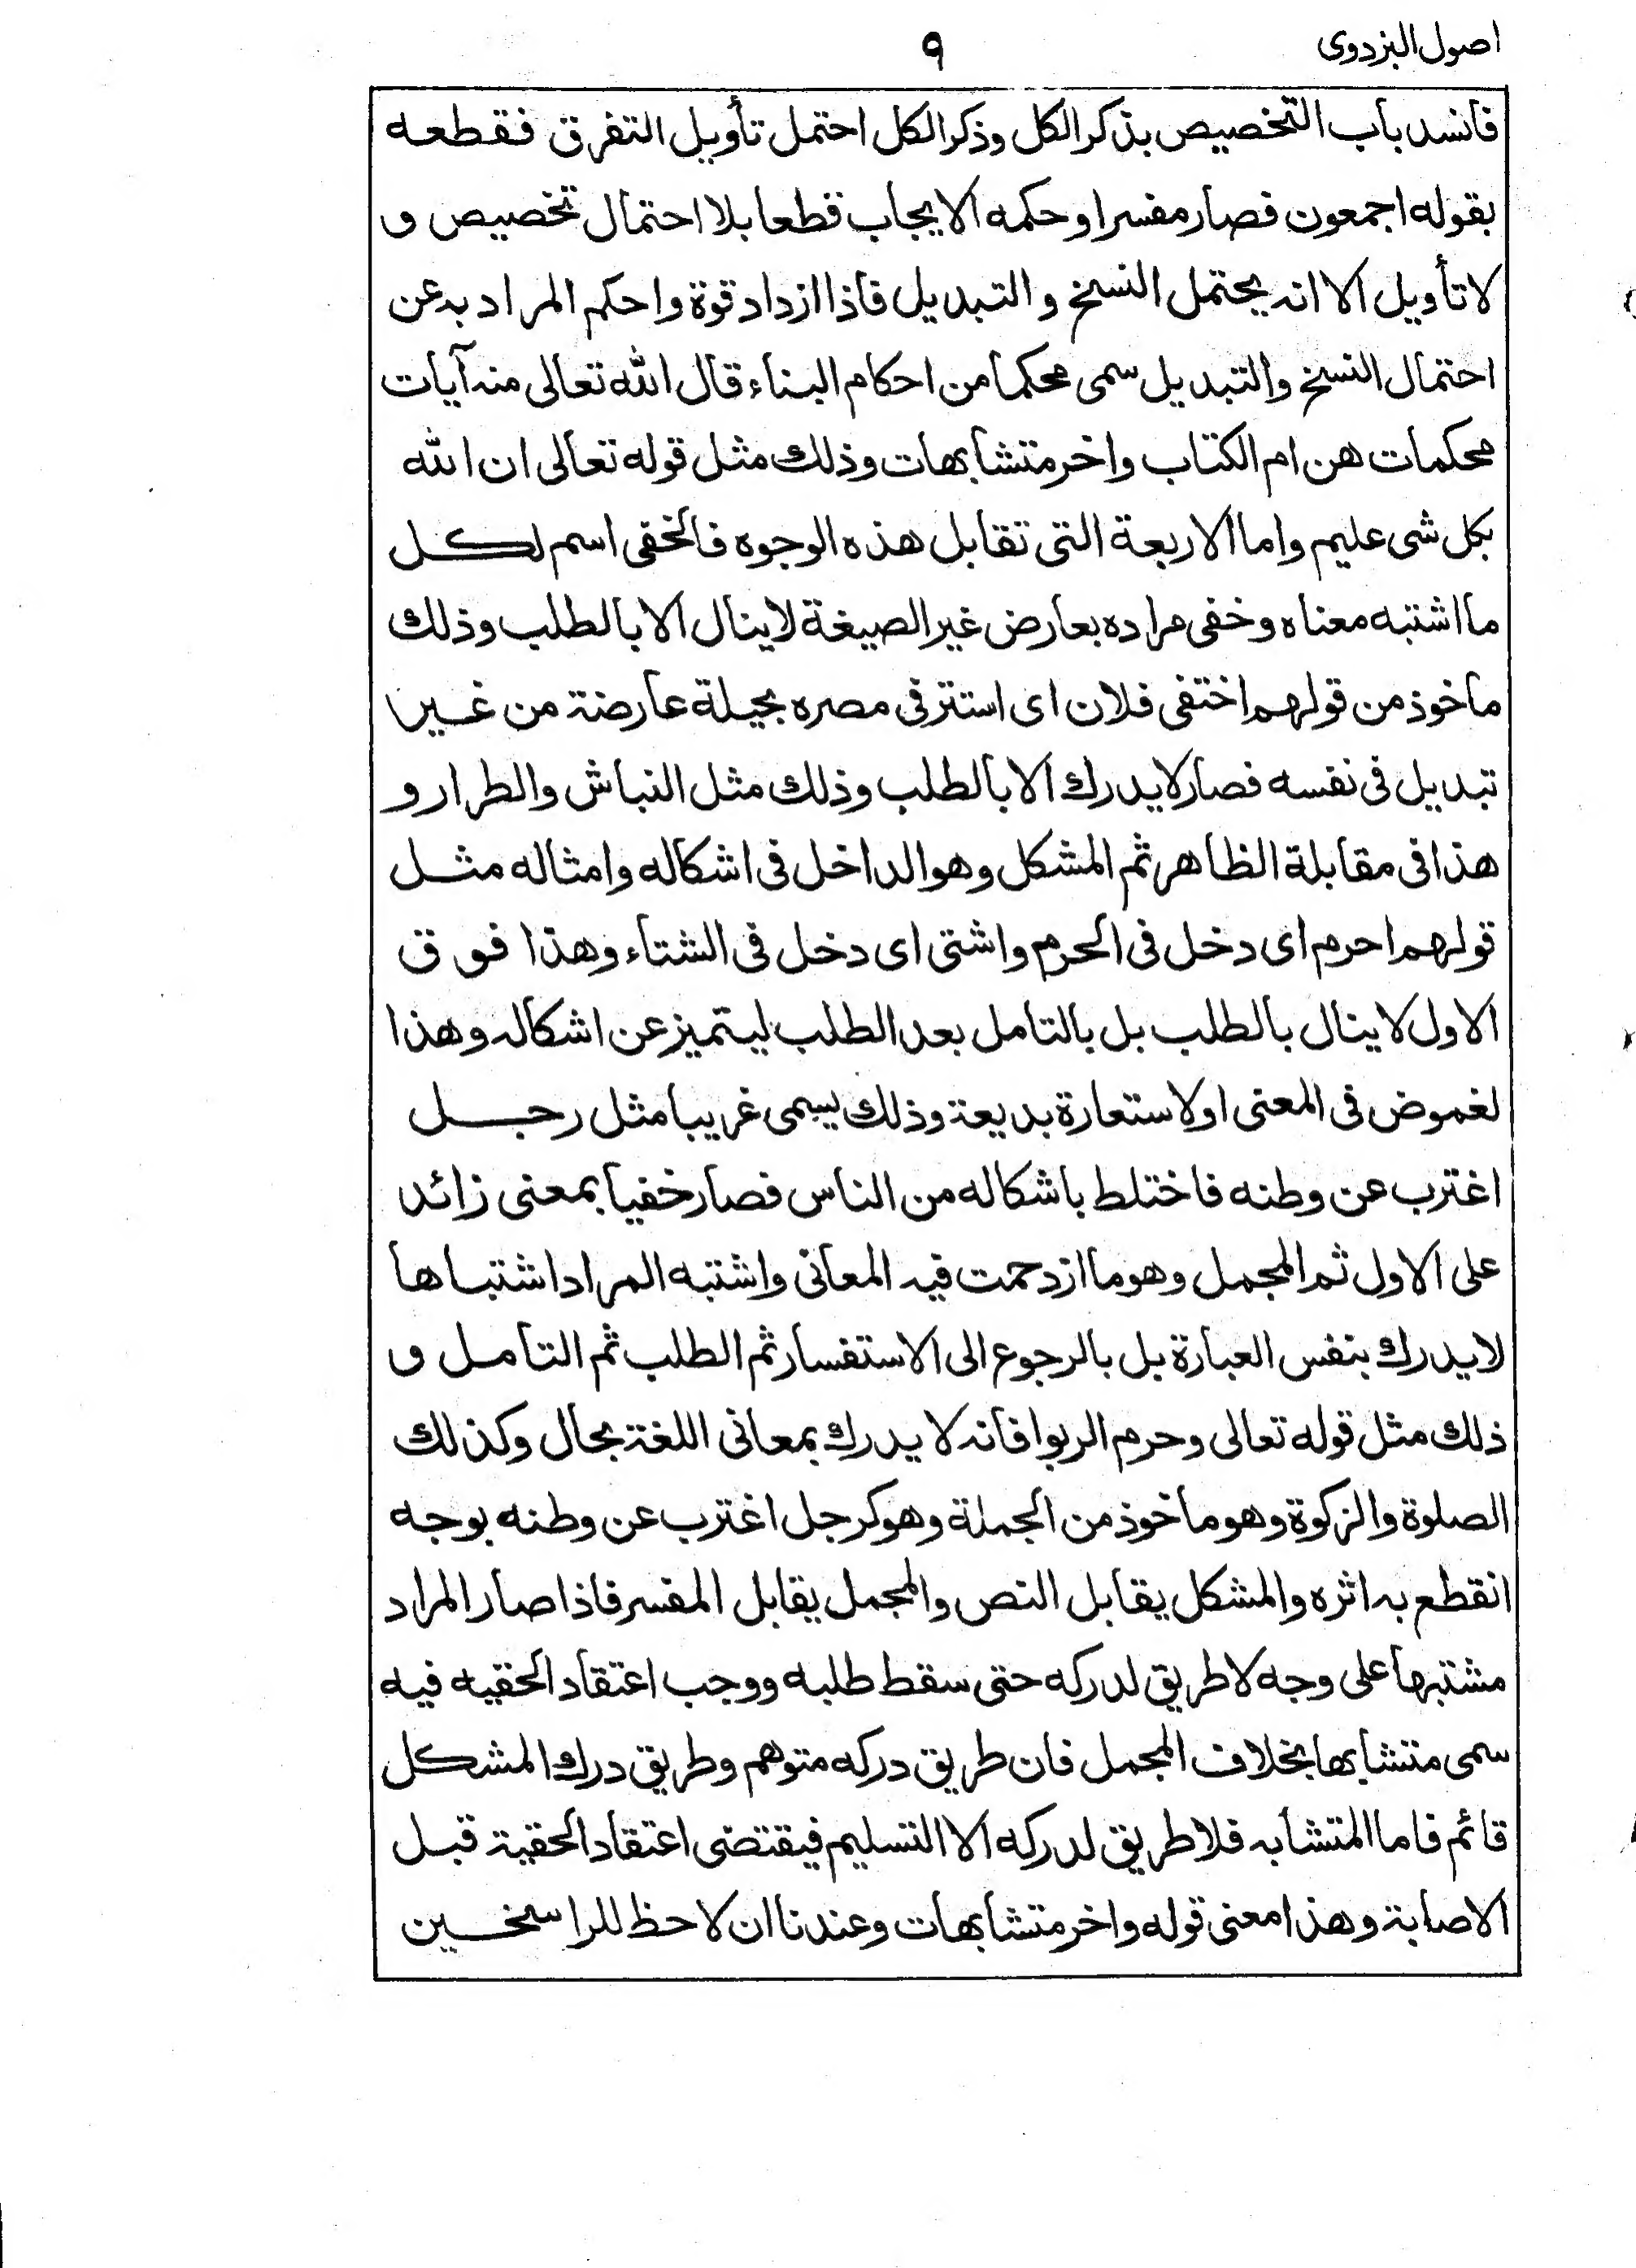 اصول البزدوی
۹
فانسد باب التخصيص بذكر الكل وذكر الكل احتمل تأويل التفرق فقطعه
بقوله اجمعون فصار مفسرا وحكمه الايجاب قطعا بلا احتمال تخصيص و
لا تأويل الا انه يحتمل النسخ والتبديل فاذا ازداد قوة واحكم المراد به عن
احتمال النسخ والتبديل سمى محكما من احكام البناء قال الله تعالى منه آيات
محكمات هن ام الكتاب واخر متشابهات وذلك مثل قوله تعالى ان الله
بكل شى عليم واما الاربعة التى تقابل هذه الوجوه فالخفى اسم لكل
ما اشتبه معناه وخفى مراده بعارض غير الصيغة لا ينال الا بالطلب وذلك
ماخوذ من قولهم اختفى فلان اى استتر فى مصره بحيلة عارضة من غير
تبديل فى نفسه فصار لا يدرك الا بالطلب وذلك مثل النباش والطرار و
هذا فى مقابلة الظاهر ثم المشكل وهو الداخل فى اشكاله وامثاله مثل
قولهم احرم اى دخل فى الحرم واشتى اى دخل فى الشتاء وهذا فوق
الاول لا ينال بالطلب بل بالتامل بعد الطلب ليتميز عن اشكاله وهذا
لغموض فى المعنى او لاستعارة بديعة وذلك يسمى غريبا مثل رجل
اغترب عن وطنه فاختلط باشكاله من الناس فصار خفيا بمعنى زائد
على الاول ثم المجمل وهو ما ازدحمت فيه المعانى واشتبه المراد اشتباها
لا يدرك بنفس العبارة بل بالرجوع الى الاستفسار ثم الطلب ثم التامل و
ذلك مثل قوله تعالى وحرم الربوا فانه لا يدرك بمعانى اللغة بحال وكذلك
الصلوة والزكوة وهو ماخوذ من الجملة وهو كرجل اغترب عن وطنه بوجه
انقطع به اثره والمشكل يقابل النص والمجمل يقابل المفسر فاذا صار المراد
مشتبها على وجه لا طريق لدركه حتى سقط طلبه ووجب اعتقاد الحقيه فيه
سمى متشابها بخلاف المجمل فان طريق دركه متوهم وطريق درك المشكل
قائم فاما المتشابه فلا طريق لدركه الا التسليم فيقتضى اعتقاد الحقية قبل
الاصابة وهذا معنى قوله واخر متشابهات وعندنا ان لا حظ للراسخين